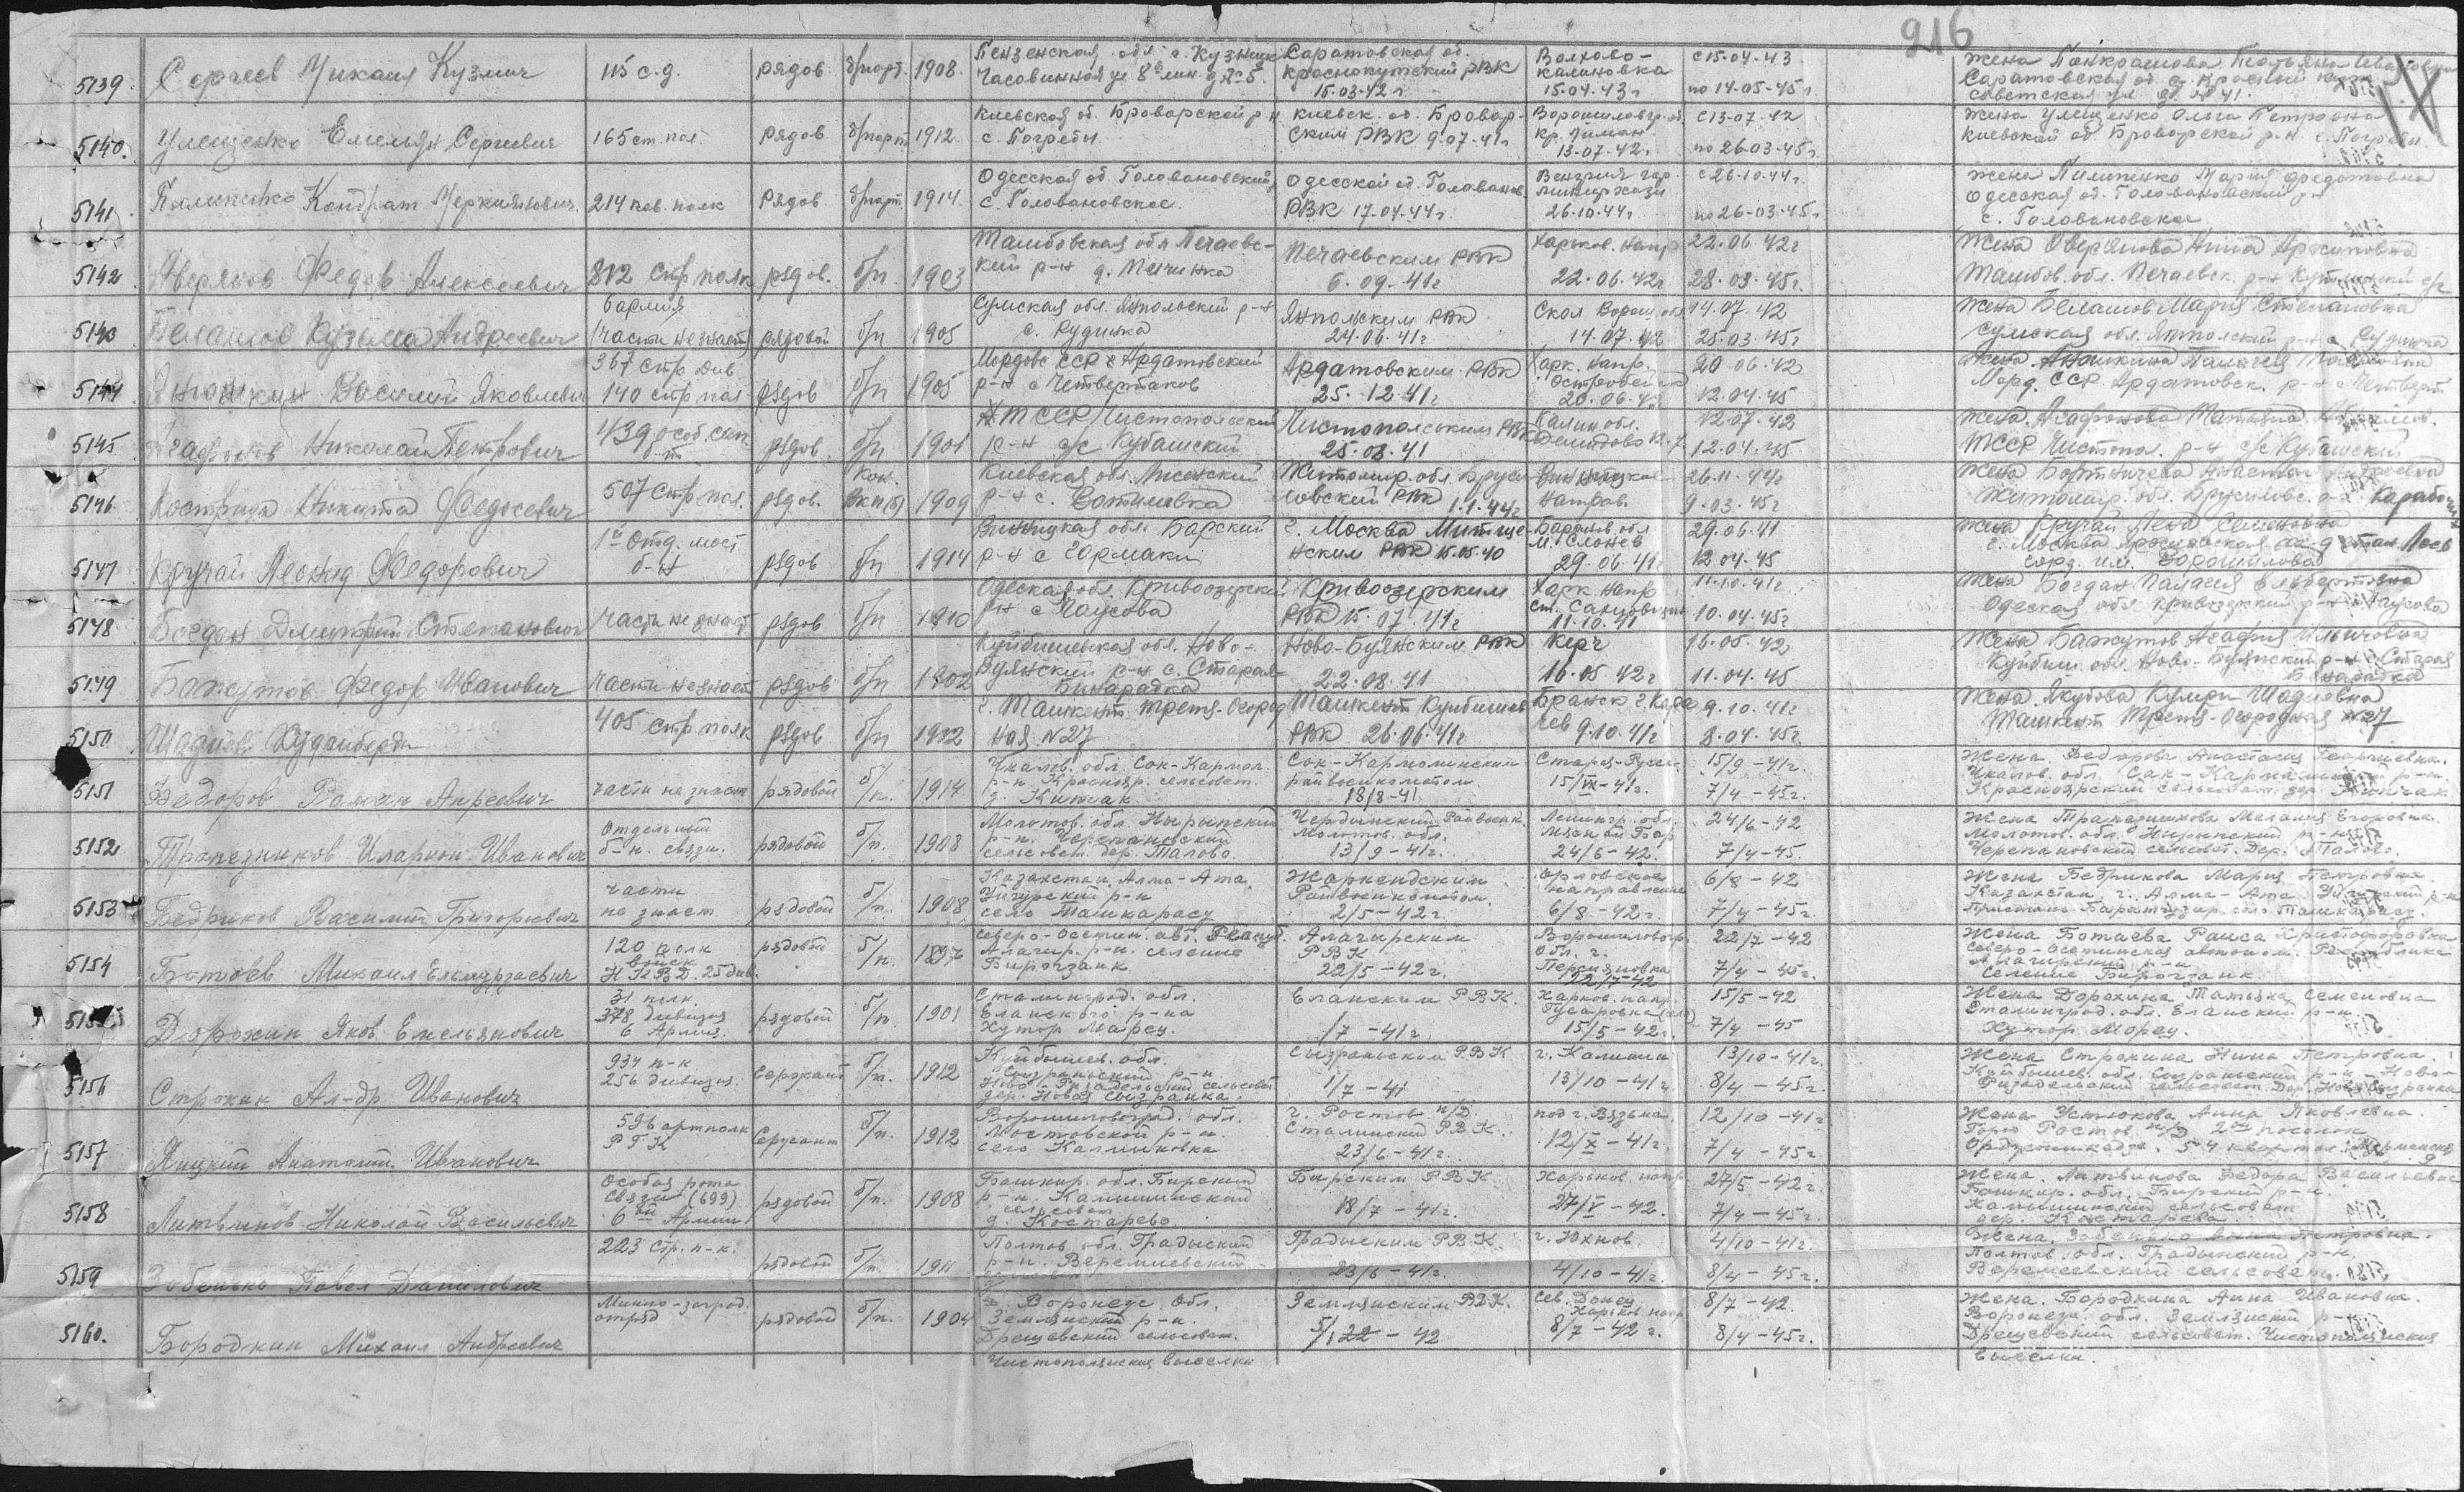 216
5139. Сергеев Михаил Кузмич 115 с.д. рядов б/парт. 1908. Пензенская обл. г. Кузнецк Часовинная ул 8 лин. д № 5 Саратовская об. краснокутский РВК 15.03.42 г Волхово-калиновка 15.04.43 г с 15.04.43 по 14.05.45 г. жена Панкрашова Татьяна Саратовская об. г. Красный Кут советская ул д. № 41.
5140. Улещенко Емельян Сергеевич 165 ст. пол. рядов б/парт 1912. Киевская об. Броварской р н с. Погребы киевск. об. Броварским РВК 9.07.41 г Ворошиловгр. об. кр. Лиман 13.07.42 г. с 13.07.42 по 26.03.45 г. жена Улещенко Ольга Петровна киевской об Броворской р-н с. Погребы
5141 Пилипенко Кондрат Меркиянович. 214 кав. полк Рядов б/парт. 1914. Одесская об. Головановский с. Головановское. Одесской об. Голованов. РВК 17.04.44 г Венгрия гор. 26.10.44 г. с 26.10.44 г. по 26.03.45 г жена Пилипенко Мария Федотовна Одесская об. Головановский р н с. Головановска
5142 Аверянов Федор Алексеевич 812 стр полк рядов. б/п 1903 Тамбовская обл Печаевский р-н д. Печаевским РВК 6.09.41 г Харьков. напр 22.06.42 г 22.06 42 г 28.03.45 г. Жена Аверянова Анна Архиповна Тамбов. обл. Печаевск. р-н с/с
5143 Белашов Кузьма Андреевич 6 армия части не знает рядовой б/п 1905 Сумская обл. Янпольский р-н с. Рудника Янпольским РВК 24.06.41 г 14.07.42 14.07.42 25.03.45 г Жена Белашов Мария Степановна Сумская обл. Янпольский р-н с. Рудника
5144 Янюшкин Василий Яковлевич 367 стр див. 140 стр пол рядов б/п 1905 Мордовс ССР Ардатовский р-н с Четвертаков Ардатовским РВК 25.12.41 г Харк. напр. 20.06.42 20 06.42 12.04.45 Жена Морд. ССР Ардатовск. р-н с Четверт.
5145 Агафонов Николай Петрович 439 особ. сап. рядов б/п 1901 ТССР Чистопольский р-н с/с Кубашский Чистопольским РВК 25.08.41 Калин. обл. Демидово 12.7. 12.07.42 12.04.45 жена Агафонова ТССР Чистопол. р-н с/с Кубашский
5146 Костриса Никита Федосеевич 507 стр пол. рядов. кон. ВКП(б) 1909 Киевская обл. р-н с. Житомир. обл. Брусиловский РВК 1.1.44 г Винницкое направ. 26.11.44 г 9.03.45 г жена Житомир. обл. Брусиловс. р-н
5147 Кручай Леонид Федорович 1й отд. мост б-н рядов б/п 1914 Винницкая обл. Барский р-н с Гормаки г. Москва РВК 15.15.40 Баранов. обл 29.06.41 г 29.06.41 12.04.45 жена Кручай Семеновна г. Москва им. Ворошилова
5148 Богдан Дмитрий Степанович части не знает рядов б/п 1910 Одеская обл. Кривоозерский р-н с Паусова Кривоозерским РВК 15.07.41 г Харк напр 11.10.41 11.10.41 г 10.04.45 г Жена Богдан Палагея Одеская обл р-н с Паусова
5149 Бажутов Федор Иванович части не знает рядов б/п 1902 Куйбишевская обл. Ново-Буянский р-н с. Старая-Бинарадка Ново-Буянским РВК 22.08.41 Керч 16.05 42 г 16.05.42 11.04.45 Жена Бажутов Агафия Ильичовна Куйбиш. обл. Ново-Буянский р-н с Старая Бинарадка
5150 Шадиев Худайберди 405 стр полк рядов б/п 1922 г. Ташкент Третя-Огородная N 27 Ташкент Куибишев РВК 26.06.41 г Бранск 9.10.41 г 9.10.41 г 8.04.45 г. Жена Якубова Кумри Шадиевна Ташкент Третя-Огородная N 27
5151 Федоров Роман Апреевич части не знает рядовой б/п. 1914 Чкалов. обл. Сок-Кармал. р-н. Краснояр. сельсовет. д. Кипчак Сок-Кармалинским райвоенкоматом 18/8-41 Старая-Русса 15/IX-41 г. 15/9-41 г. 7/4-45 г. Жена Федорова Анастасия Георгиевна. Чкалов. обл. Сок-Кармалинский р-н. Красноярский сельсовет. дер. Кипчак
5152 Трапезников Иларион Иванович Отдельный б-н. связи. рядовой б/п. 1908 Молотов. обл. Ныробский р-н. Черепановский сельсовет. дер. Талово. Чердынский Райвоенк. Молотов. обл. 13/9-41 г. Ленингр. обл. Мясной Бор 24/6-42. 24/6-42 7/4-45. Жена Трапезникова Мелания Егоровна. Молотов. обл. Ныробский р-н Черепановский сельсовет. Дер. Талово.
5153 Бедриков Василий Григорьевич части не знает рядовой б/п. 1908 Казахстан Алма-Ата. Уйгурский р-н село Ташкарасу Жаркендским Райвоенкоматом. 2/5-42 г. Орловское направление 6/8-42 г. 6/8-42 7/4-45 г. Жена Бедрикова Мария Петровна. Казахстан г. Алма-Ата Уйгурский р-н село Ташкарасу.
5154 Ботоев Михаил Елмурзаевич 120 полк войск Н К В Д. 25 див. рядовой б/п. 1897 Северо-Осетин. авт. Респуб. Алагир. р-н. селение Бирагзанк Алагирским РВК 22/5-42 г. Ворошиловгр. обл. г. Персияновка 22/7-42 22/7-42 7/4-45 г. Жена Ботаева Раиса Христофоровна Северо-Осетинская автоном. Республика Алагирский р-н селение Бирагзанк.
5155 Дорохин Яков Емельянович 31 полк. 378 дивизия 6 Армия. рядовой б/п. 1901 Сталинград. обл. Еланского р-на Хутор Морец. Еланским РВК. /7-41 г. Харков. напр. Гусаровка 15/5-42 г. 15/5-42 7/4-45 Жена Дорохина Татьяна Семеновна Сталинград. обл. Еланский р-н Хутор Морец.
5156 Строкин Ал-др Иванович 934 п-к 256 дивизия. Сержант б/п. 1912 Куйбышев. обл. Сызранский р-н. Ново-Ризадельский сельсовет дер. Новая Сызранка. Сызранским РВК 1/7-41 г. Калинин 13/10-41 г. 13/10-41 г. 8/4-45 г. Жена Строкина Нина Петровна. Куйбышев. обл. Сызранский р-н. Ново-Ризадельский сельсовет. Дер. Новая Сызранка
5157 Яицкий Анатолий Иванович 596 артполк Р Г К Сержант б/п. 1912 Ворошиловград. обл. Мостовской р-н. село Калмыковка г. Ростов н/Д. Сталинский РВК. 23/6-41 г. под г. Вязьма 12/X-41 г. 12/10-41 г 7/4-45 г. Жена Устюкова Анна Яковлевна. Город Ростов н/Д 2ой поселок Орджоникидзе. 54 квартал
5158 Литвинов Николай Васильевич Особая рота связи (699) 6ой Армии рядовой б/п. 1908 Башкир. обл. Бирский р-н. Калининский сельсовет д. Костарево. Бирским РВК 18/7-41 г. Харьков. напр. 27/V-42. 27/5-42 г. 7/4-45 г. Жена. Литвинова Федора Васильевна Башкир. обл. Бирский р-н. сельсовет дер. Костарева.
5159 Зобенько Павел Данилович 223 стр. п-к. рядовой б/п. 1911 Полтов. обл. Градыский р-н. Веремиевский Градыским РВК. 23/6-41 г. г. Юхнов. 4/10-41 г. 4/10-41 г. 8/4-45 г. Жена. Зобенько Петровна. Полтов. обл. Градыжский р-н. Веремеевский сельсовет.
5160. Бородкин Михаил Андреевич Минно-загрод. отряд рядовой б/п. 1904 Воронеж. обл. Землянский р-н. Дрещевский сельсовет. Чистополянския выселки Землянским РВК. 5/122-42 Сев. Донец Харьков. напр. 8/7-42 г. 8/7-42. 8/4-45 г. Жена. Бородкина Анна Ивановна. Воронеж. обл. Землянский р-н Дрещевский сельсовет. Чистополянския выселки.